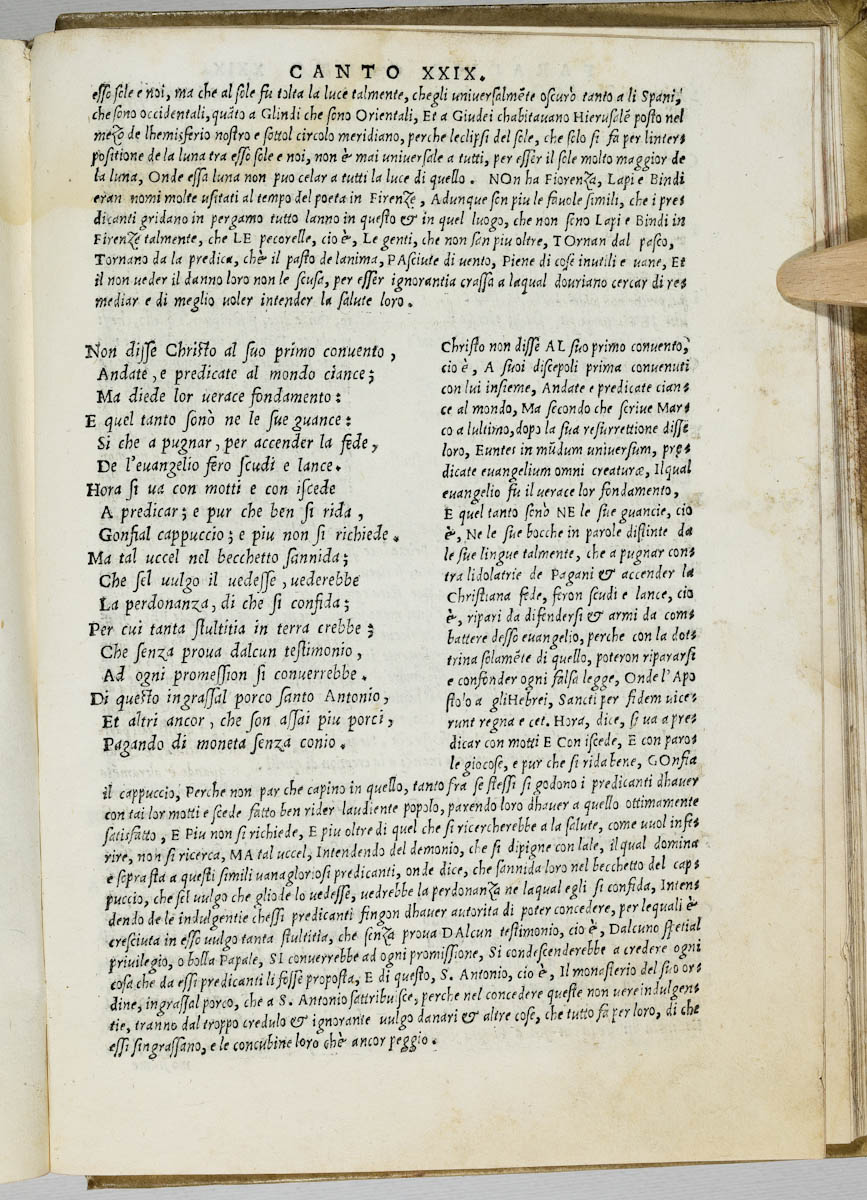 CANTO XXIX.
esso sole e noi, ma che al sole fu tolta la luce talmente, chegli universalmẽte oscurò tanto a li Spani,
che sono occidentali, quãto a Glindi che sono Orientali, Et a Giudei chabitauano Hierusalẽ posto nel
mezo de lhemisferio nostro e sottol circolo meridiano, perche leclipsi del sole, che solo si fa per linter-
positione de la luna tra esso sole e noi, non è mai universale a tutti, per esser il sole molto maggior de
la luna, Onde essa luna non puo celar a tutti la luce di quello. NOn ha Fiorenza, Lapi e Bindi
eran nomi molte usitati al tempo del poeta in Firenze, Adunque son piu le fauole simili, che i pre-
dicanti gridano in pergamo tutto lanno in questo & in quel luogo, che non sono Lapi e Bindi in
Firenze talmente, che LE pecorelle, cio è, Le genti, che non san piu oltre, TOrnan dal pasco,
Tornano da la predica, chè il pasto de lanima, PAsciute di uento, Piene di cose inutili e uane, Et
il non ueder il danno loro non le scusa, per esser ignorantia crassa a laqual douriano cercar di re-
mediar e di meglio uoler intender la salute loro.
Non disse Christo al suo primo conuento,
Andate, e predicate al mondo ciance;
Ma diede lor uerace fondamento:
E quel tanto sonò ne le sue guance:
Si che a pugnar, per accender la fede,
De l'euangelio fero scudi e lance.
Hora si ua con motti e con iscede
A predicar; e pur che ben si rida,
Gonfial cappuccio; e piu non si richiede.
Ma tal uccel nel becchetto sannida;
Che sel uulgo il uedesse, uederebbe
La perdonanza, di che si confida;
Per cui tanta stultitia in terra crebbe;
Che senza proua dalcun testimonio,
Ad ogni promession si conuerrebbe.
Di questo ingrassal porco santo Antonio,
Et altri ancor, che son assai piu porci,
Pagando di moneta senza conio.
Christo non disse AL suo primo conuento,
cio è, A suoi discepoli prima conuenuti
con lui insieme, Andate e predicate cian-
ce al mondo, Ma secondo che scriue Mar-
co a lultimo, dopo la sua resurrettione disse
loro, Euntes in mũdum universum, præ-
dicate euangelium omni creaturæ, Ilqual
euangelio fu il uerace lor fondamento,
E quel tanto sonò NE le sue guancie, cio
è, Ne le sue bocche in parole distinte da
le sue lingue talmente, che a pugnar con-
tra lidolatrie de Pagani & accender la
Christiana fede, feron scudi e lance, cio
è, ripari da difendersi & armi da com-
battere desso euangelio, perche con la dot-
trina solamẽte di quello, poteron ripararsi
e confonder ogni falsa legge, Onde l'Apo
stolo a gliHebrei, Sancti per fidem uice-
runt regna e cet. Hora, dice, si ua a pre-
dicar con motti E Con iscede, E con paro-
le giocose, e pur che si rida bene, GOnfia
il cappuccio, Perche non par che capino in quello, tanto fra se stessi si godono i predicanti dhauer
con tai lor motti e scede fatto ben rider laudiente popolo, parendo loro dhauer a quello ottimamente
satisfatto, E Piu non si richiede, E piu oltre di quel che si ricercherebbe a la salute, come uuol infe-
rire, non si ricerca, MA tal uccel, Intendendo del demonio, che si dipigne con lale, il qual domina
e soprasta a questi simili uanagloriosi predicanti, onde dice, che sannida loro nel becchetto del cap-
puccio, che sel uulgo che gliode lo uedesse, uedrebbe la perdonanza ne laqual egli si confida, Inten-
dendo de le indulgentie chessi predicanti fingon dhauer autorita di poter concedere, per lequali è
cresciuta in esso uulgo tanta stultitia, che senza proua DAlcun testimonio, cio è, Dalcuno spetial
priuilegio, o bolla Papale, SI conuerrebbe ad ogni promissione, Si condescenderebbe a credere ogni
cosa che da essi predicanti li fosse proposta, E di questo, S. Antonio, cio è, Il monasterio del suo or-
dine, ingrassal porco, che a S. Antonio sattribuisce, perche nel concedere queste non uere indulgen-
tie, tranno dal troppo credulo & ignorante uulgo danari & altre cose, che tutto fa per loro, di che
essi singrassano, e le concubine loro chè ancor peggio.